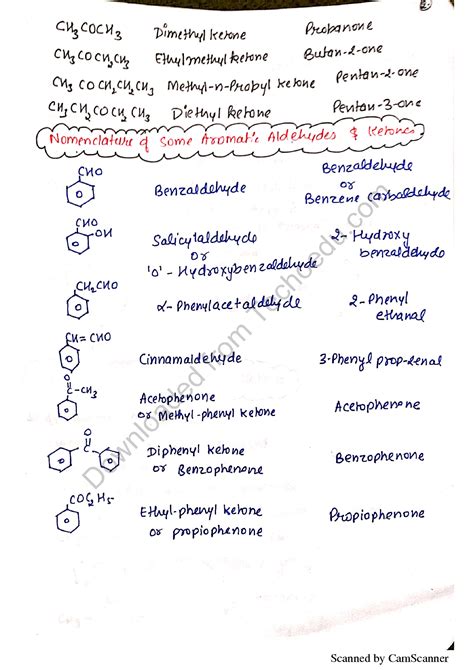 CH₃COCH₃ Dimethyl ketone Probanone
CH₃COCH₂CH₃ Ethylmethyl ketone Butan-2-one
CH₃COCH₂CH₂CH₃ Methyl-n-Probyl ketone Pentan-2-one
CH₃CH₂COCH₂CH₃ Diethyl ketone Pentan-3-one
Nomenclature of Some Aromatic Aldehydes & Ketones
CHO Benzaldehyde Benzaldehyde
or
Benzene carbaldehyde
CHO
OH Salicylaldehyde 2-Hydroxy
or benzaldehyde
'o'-Hydroxybenzaldehyde
CH₂CHO α-Phenylacetaldehyde 2-Phenyl
ethanal
CH=CHO Cinnamaldehyde 3-Phenyl prop-2enal
O
C-CH₃ Acetophenone Acetophenone
or Methyl-phenyl ketone
O
C Diphenyl ketone Benzophenone
or Benzophenone
COC₂H₅ Ethyl-phenyl ketone Propiophenone
or propiophenone
Scanned by CamScanner